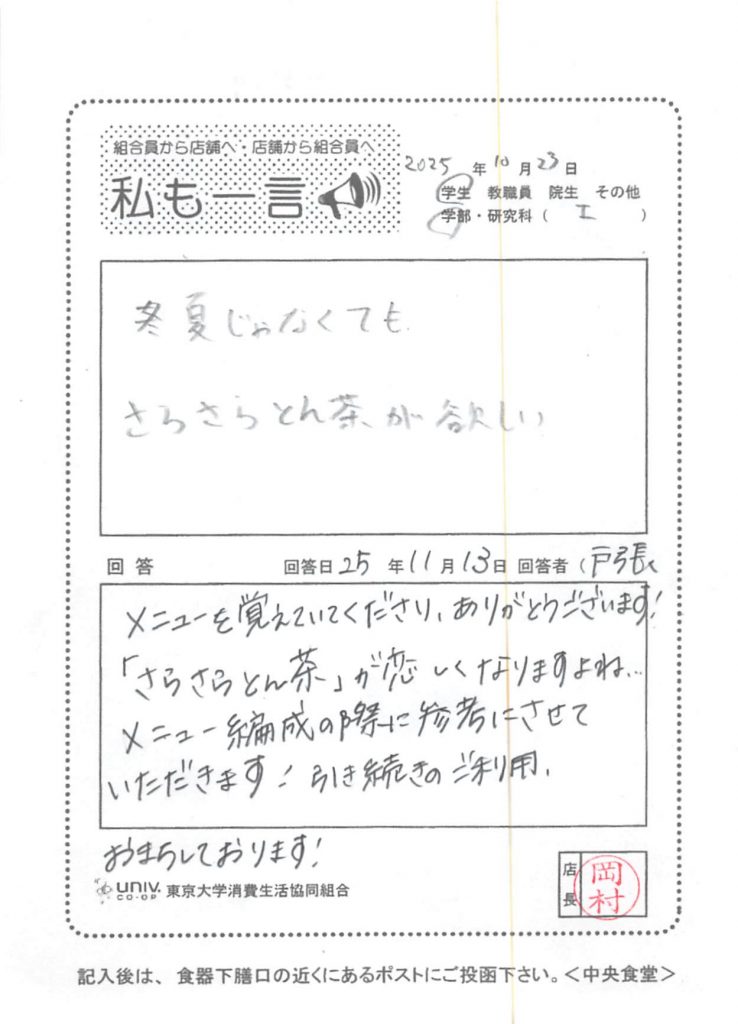 組合員から店舗へ・店舗から組合員へ
私も一言
2025年10月23日
学生 教職員 院生 その他
学部・研究科（ 工 ）
冬夏じゃなくても
さらさらとん茶が欲しい
回答 回答日25年11月13日 回答者（戸張
メニューを覚えていてくださり、ありがとうございます！
「さらさらとん茶」が恋しくなりますよね…
メニュー編成の際に参考にさせて
いただきます！引き続きのご利用、
おまちしております！
UNIV.
CO-OP
東京大学消費生活協同組合
店長
岡村
記入後は、食器下膳口の近くにあるポストにご投函下さい。＜中央食堂＞